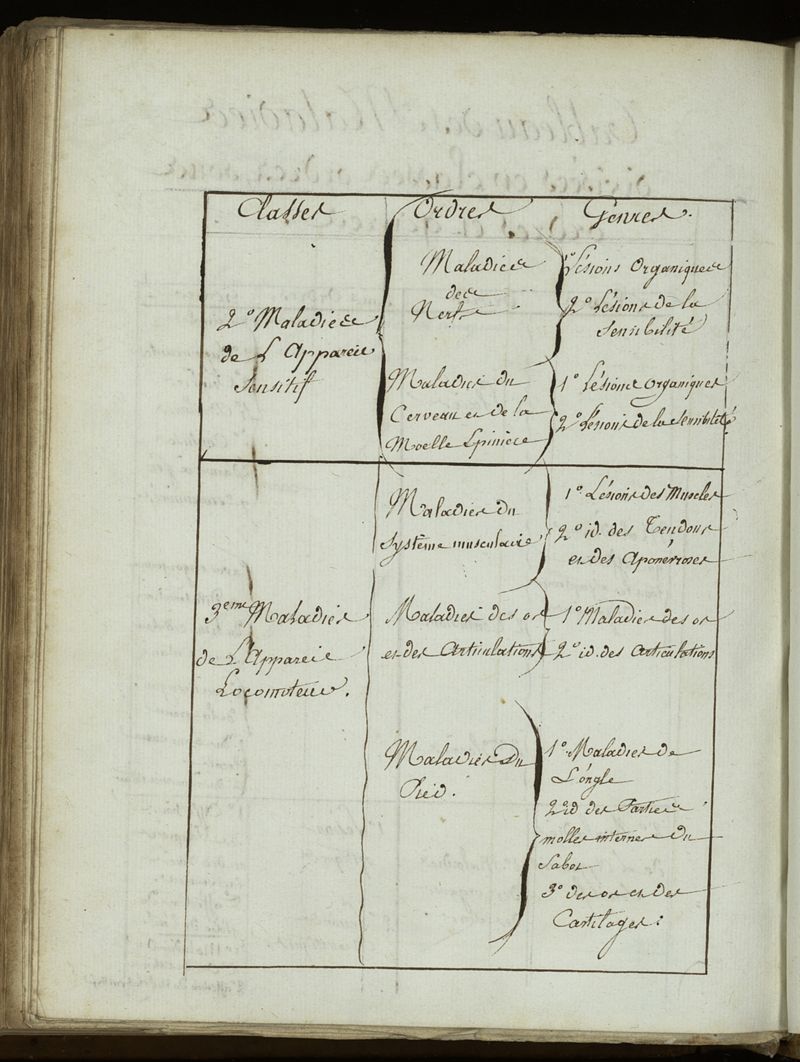 Classes Ordres Genres.
2º Maladies
de L'Appareil
Sensitif
Maladies
des
Nerfs
1º Lésions Organiques
2º Lésions de la
Sensibilité
Maladies du
Cerveau et de la
Moelle Epinière
1º Lésions organiques
2º Lésions de la sensibilité
3eme Maladies
de L'Appareil
Locomoteur.
Maladies du
système musculaire
1º Lésions des Muscles
2º id. des Tendons
et des Aponévroses
Maladies des os
et des Articulations
1º Maladies des os
2º id. des articulations
Maladies Du
Pied.
1º Maladies de
L'ongle
2º id des Parties
molles internes du
Sabot
3º des os et des
Cartilages: